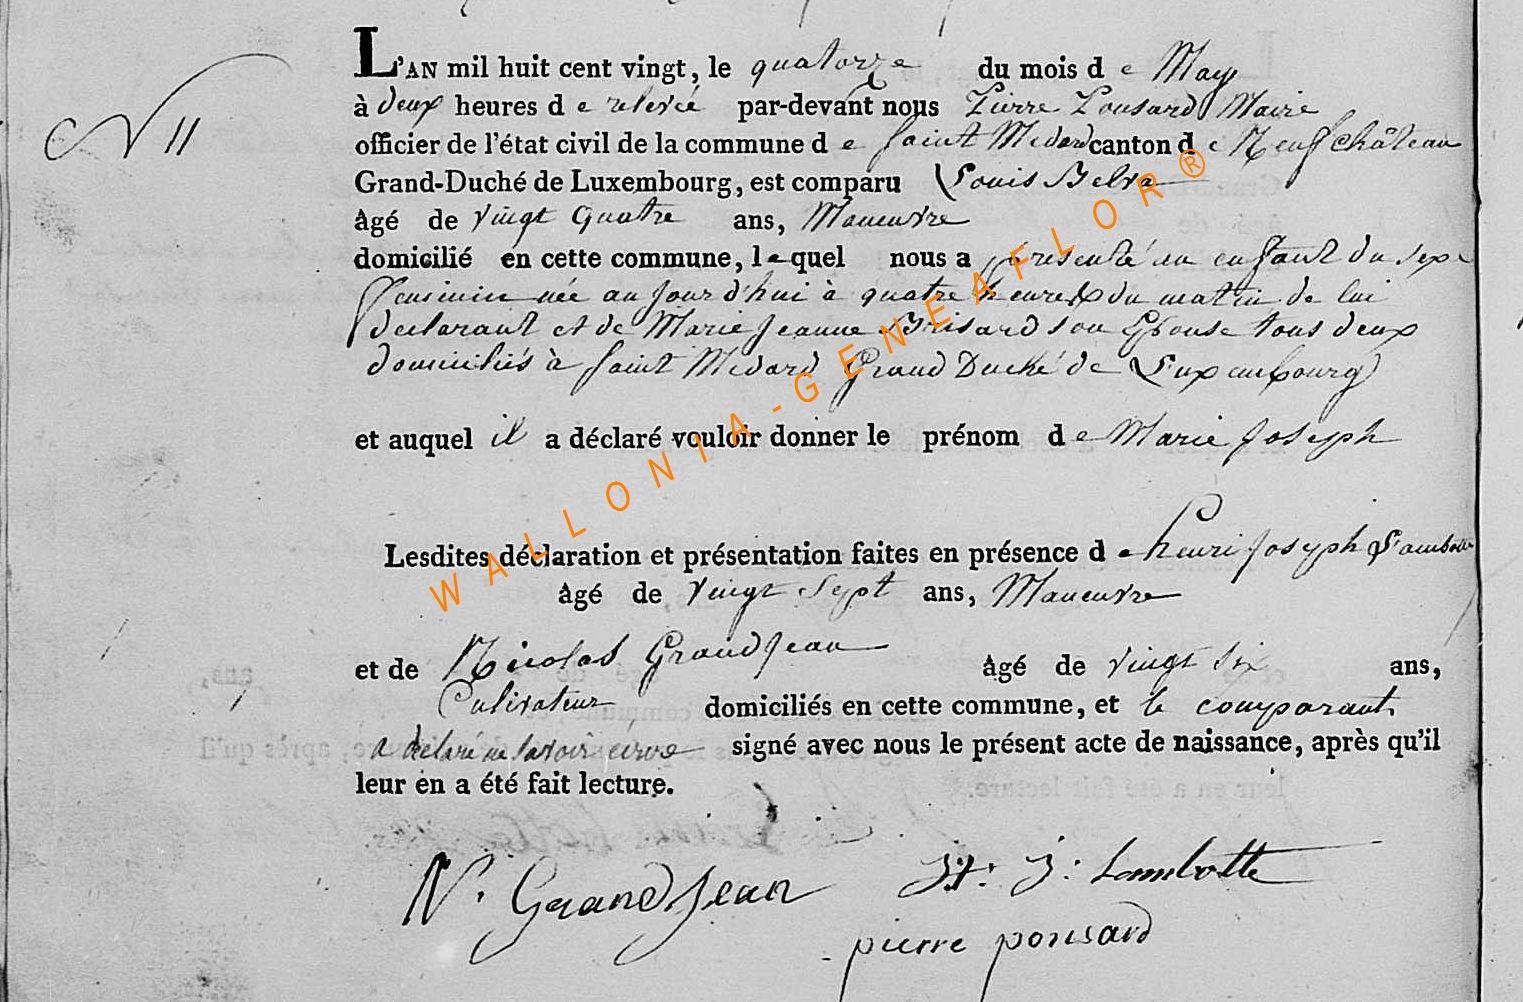 L'AN mil huit cent vingt, le quatorze du mois d e May
N 11
à deux heures d e relevée par-devant nous Pierre Ponsard Maire
officier de l'état civil de la commune d e Saint Medard canton d e Neufchâteau
Grand-Duché de Luxembourg, est comparu Louis Belva
âgé de vingt quatre ans, Maneuvre
domicilié en cette commune, le quel nous a présenté un enfant du sexe
feminin née au jour d'hui à quatre heures du matin de lui
declarant et de Marie Jeanne Brisard son Epouse tous deux
domiciliés à Saint Medard Grand Duché de Luxembourg
et auquel il a déclaré vouloir donner le prénom d e Marie Joseph
Lesdites déclaration et présentation faites en présence d e henri Joseph Lambotte
âgé de vingt sept ans, Maneuvre
et de Nicolas Grandjean âgé de vingt six ans,
Cultivateur domiciliés en cette commune, et le comparant
a déclaré ne savoir signé avec nous le présent acte de naissance, après qu'il
leur en a été fait lecture.
N. Grandjean H: J: Lambotte
pierre ponsard
WALLONIA-GENEAFLOR®